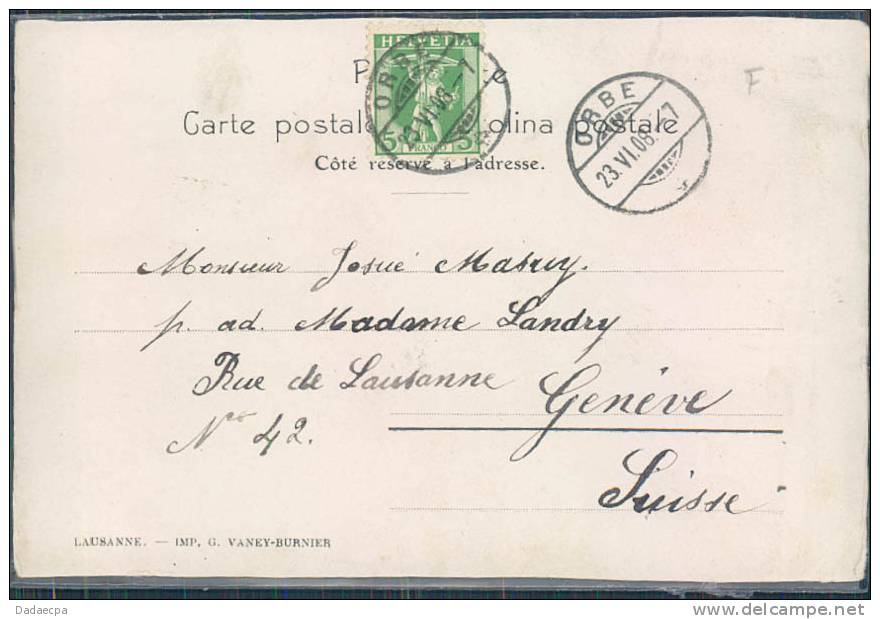 HELVETIA
ORBE
23.VI.08.-7
5 FRANCO 5
F
ORBE
23.VI.08.-7
Carte postale olina postale
Côté réservé à l'adresse.
Monsieur Josué
p. ad. Madame Landry
Rue de Lausanne
Nro 42.
Genève
Suisse
LAUSANNE. — IMP. G. VANEY-BURNIER
Dadaecpa
www.delcampe.net